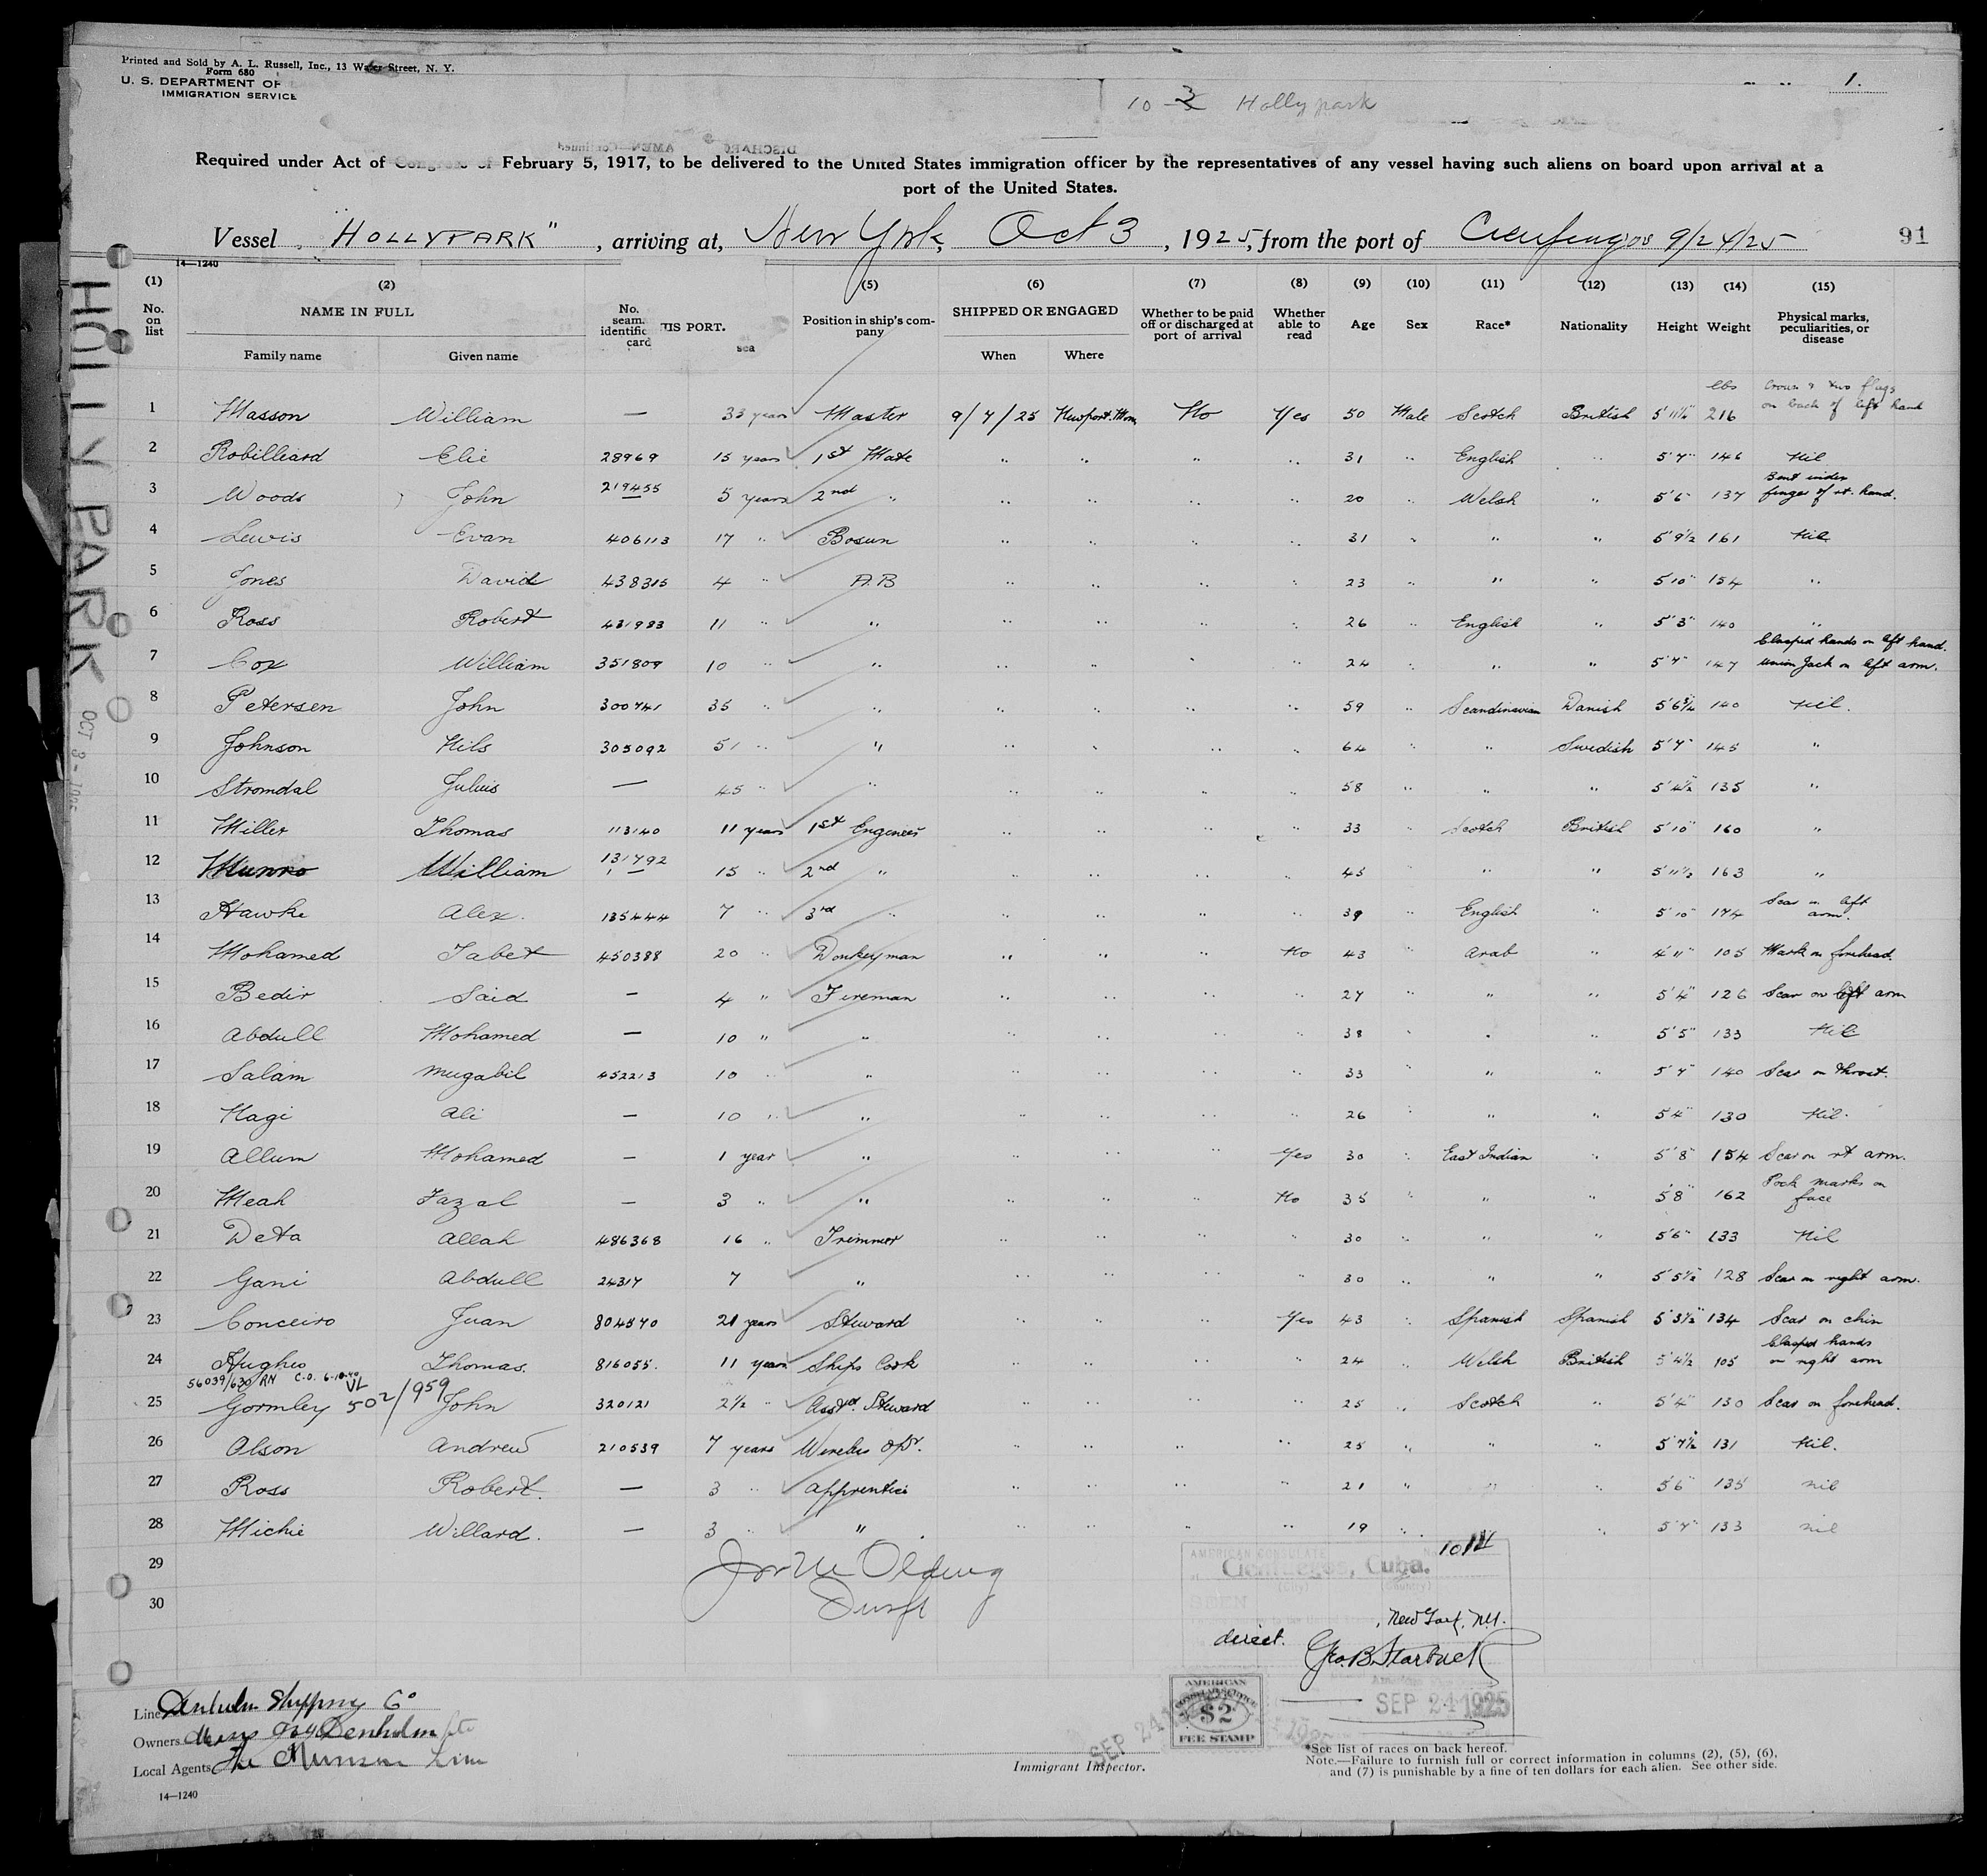 Printed and Sold by A. L. Russell, Inc., 13 Water Street, N. Y.
Form 680
U. S. DEPARTMENT OF
IMMIGRATION SERVICE
1.
10 3 Hollypark
Required under Act of Congress of February 5, 1917, to be delivered to the United States immigration officer by the representatives of any vessel having such aliens on board upon arrival at a
port of the United States.
Vessel "HOLLYPARK", arriving at, New York, Oct 3, 1925, from the port of Cienfuegos 9/24/25
91
14—1240
(1) (2) (5) (6) (7) (8) (9) (10) (11) (12) (13) (14) (15)
No. on list NAME IN FULL Family name Given name No. seam. identific card IS PORT. sea Position in ship's company SHIPPED OR ENGAGED When Where Whether to be paid off or discharged at port of arrival Whether able to read Age Sex Race* Nationality Height Weight Physical marks, peculiarities, or disease
1 Masson William — 33 years Master 9/7/25 Newport. Mon No Yes 50 Male Scotch British 5'11½" lbs 216 Crown & two flags on back of left hand
2 Robilliard Elie 28969 15 years 1st Mate " " " " 31 " English " 5'7" 146 Nil
3 Woods John 219455 5 years 2nd " " " " " 20 " Welsh " 5'6" 137 Bent index finger of rt. hand.
4 Lewis Evan 406113 17 " Bosun " " " " 31 " " " 5'9½ 161 Nil
5 Jones David 438315 4 " A.B " " " " 23 " " " 5'10" 154 "
6 Ross Robert 431983 11 " " " " " " 26 " English " 5'3" 140 "
7 Cox William 351809 10 " " " " " " 24 " " " 5'7" 147 Clasped hands on left hand. Union Jack on left arm.
8 Petersen John 300741 35 " " " " " " 59 " Scandinavian Danish 5'6¾ 140 Nil.
9 Johnson Nils 305092 51 " " " " " " 64 " " Swedish 5'7" 145 "
10 Stromdal Julius — 45 " " " " " " 58 " " " 5'4½" 135 "
11 Miller Thomas 113140 11 years 1st Engineer " " " " 33 " Scotch British 5'10" 160 "
12 Munro William 131792 15 " 2nd " " " " " 45 " " " 5'11½ 163 "
13 Hawke Alex. 135444 7 " 3rd " " " " " 39 " English " 5'10" 174 Scar on left arm.
14 Mohamed Tabet 450388 20 " Donkeyman " " " No 43 " Arab " 4'11" 105 Mark on forehead.
15 Bedir Said — 4 " Fireman " " " " 27 " " " 5'4" 126 Scar on left arm
16 Abdull Mohamed — 10 " " " " " " 38 " " " 5'5" 133 Nil
17 Salam Mugabil 452213 10 " " " " " " 33 " " " 5'7" 140 Scar on throat.
18 Hagi Ali — 10 " " " " " " 26 " " " 5'4" 130 Nil.
19 Allum Mohamed — 1 year " " " " Yes 30 " East Indian " 5'8" 154 Scar on rt arm.
20 Meah Fazal — 3 " " " " " No 35 " " " 5'8" 162 Pock marks on face
21 Deta Allah 486368 16 " Trimmer " " " " 30 " " " 5'6" 133 Nil
22 Gani Abdull 24317 7 " " " " " 30 " " " 5'5½" 128 Scar on right arm.
23 Conceiro Juan 804570 21 years Steward " " " Yes 43 " Spanish Spanish 5'3½" 134 Scar on chin
24 Hughes Thomas. 816055. 11 years Ships Cook " " " " 24 " Welsh British 5'4½ 105 Clasped hands on right arm
56039/630 RN C.O. 6-10-40 VL
502/959
25 Gormley John 320121 2½ " Asst. Steward " " " " 25 " Scotch " 5'4" 130 Scar on forehead.
26 Olson Andrew 210539 7 years Wireless Opr. " " " " 25 " " " 5'7½ 131 Nil.
27 Ross Robert. — 3 " Apprentice " " " " 21 " " " 5'6" 135 nil
28 Michie Willard. — 3 " " " " " " 19 " " 5'7" 133 nil
29
30
AMERICAN CONSULATE
Cienfuegos, Cuba.
(City) (Country)
SEEN
New York, N.Y.
direct.
Geo. B. Starbuck
SEP 24 1925
AMERICAN
CONSULAR SERVICE
$2
FEE STAMP
SEP 24 1925
Line Denholm Shipping Co
Owners Denholm
Local Agents The Munson Line
Immigrant Inspector.
*See list of races on back hereof.
Note.—Failure to furnish full or correct information in columns (2), (5), (6),
and (7) is punishable by a fine of ten dollars for each alien. See other side.
14—1240
HOLLYPARK
OCT 3 -